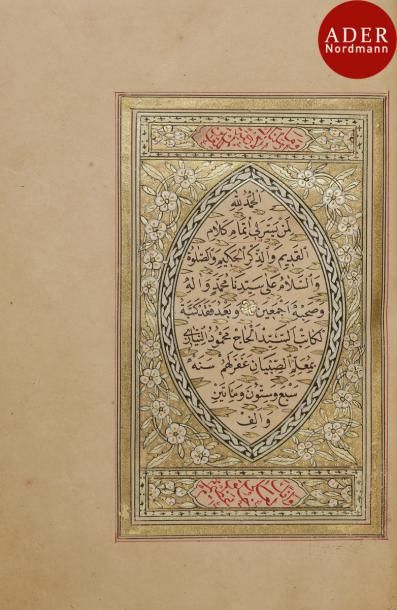 ADER
Nordmann
الحمد لله
لمن يسر لي اتمام كلام
القديم والذكر الحكيم والصلوة
والسلام على سيدنا محمد واله
وصحبه اجمعين وبعد فقد كتبة
الكاتب السيد الحاج محمود
بمعلم الصبيان غفر لهم سنه
سبع وستون وماتين
والف